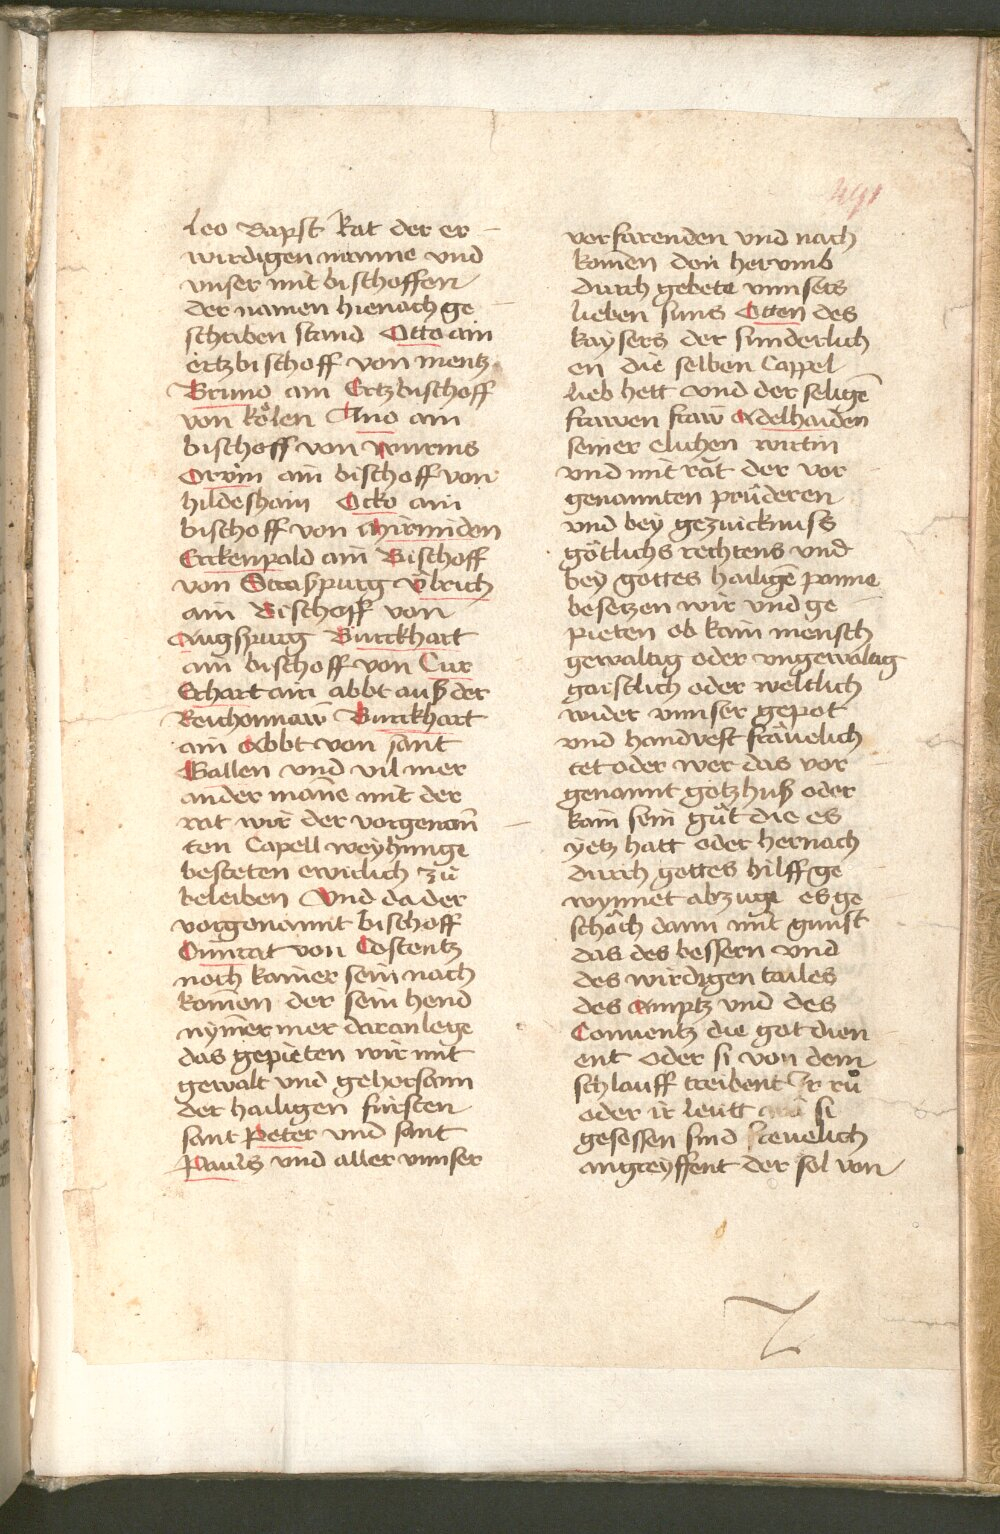 491
leo Bapst Rat der er
wirdigen manne vnd
vnser mit bischoffen
der namen hienach ge
schriben stand Otto ain
ertzbischoff von mentz
Bruno ain Ertzbischoff
von koͤlen Ano ain
bischoff von wurms
Otwin ain bischoff von
hildeshain Ocko ain
bischoff von Mirmiden
Erckenpald ain Bischoff
von Straspurg vͦlrich
ain Bischoff von
Augspurg Burckhart
ain bischoff von Cur
Echart ain abbt auß der
Reichonnaw Burckhart
ain Abbt von sant
Gallen vnd vil mer
ander mane mit der
rat wir der vorgenan̄
ten Capell weyhunge
besteten ewiclich zuͦ
beleiben Vnd da der
vorgenannt bischoff
Cunrat von Costentz
noch kainer sein nach
komen der sein hend
nymer mer daran lege
das gepieten wir mit
gewalt vnd gehorsam
der hailigen fursten
sant Peter vnd sant
Pauls vnd aller vnnser
vorfarenden vnd nach
komen don herumb
durch gebete vnnsers
lieben suns Otten des
kaysers der sunderlich
en die selben Cappel
lieb hett vnd der selige̅
frawen fraw Adelhaiden
seiner elichen wirtin
vnd mit rat der vor
genannten pruͤderen
vnd bey gezuicknuss
goͤtlichs rechtens vnd
bey gottes hailige̅ panne
besetzen wir vnd ge
pieten ob kain mensch
gewaltig oder vngewaltig
gaistlich oder weltlich
wider vnnser gepot
vnd handvest fraͤuelich
tet oder wer das vor
genannt gotzhuß oder
kain sein guͦt die es
yetz hatt oder hernach
durch gottes hilff ge
wynnet abzuge es ge
schaͤch dann mit gunst
das des bessern vnd
des wirdigen tailes
des Amptz vnd des
Conuentz die got dien
ent oder si von dem
schlauff treibent Ir ruͦ
oder ir leutt si
gesessen sind freuelich
angreyffent der sol von